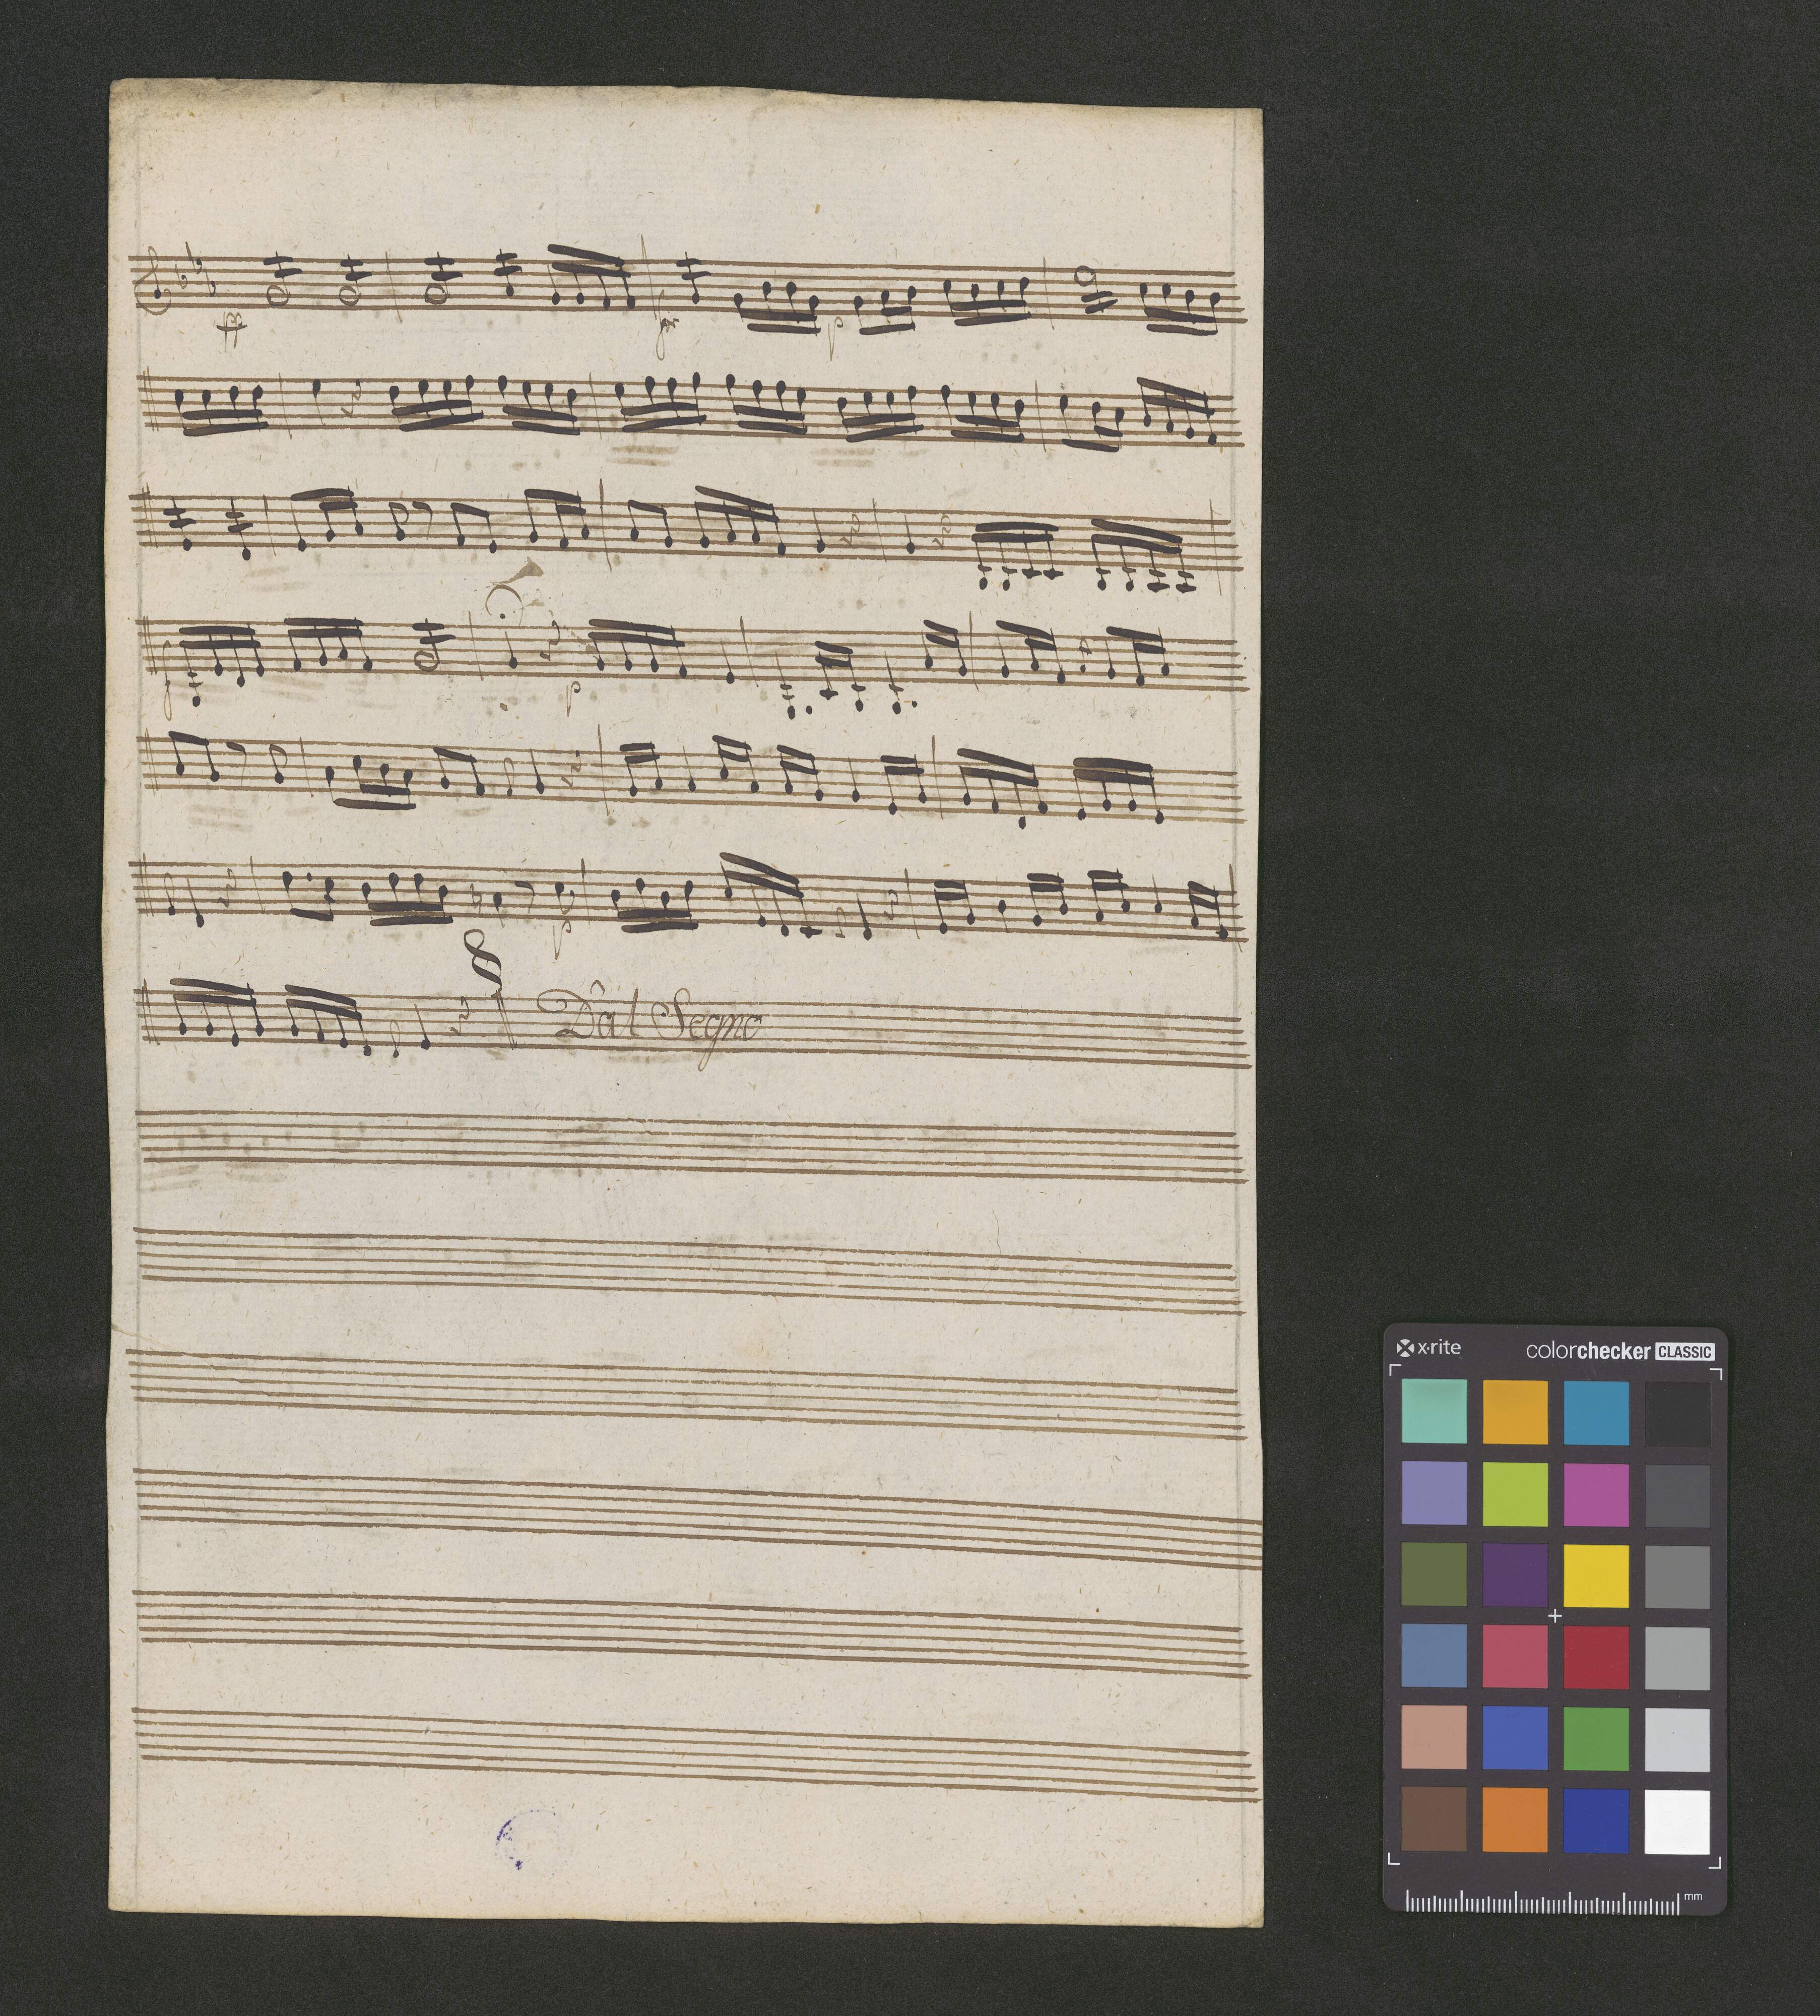 pp
for
p
f
p
p
Dal Segno
x·rite colorchecker CLASSIC
mm